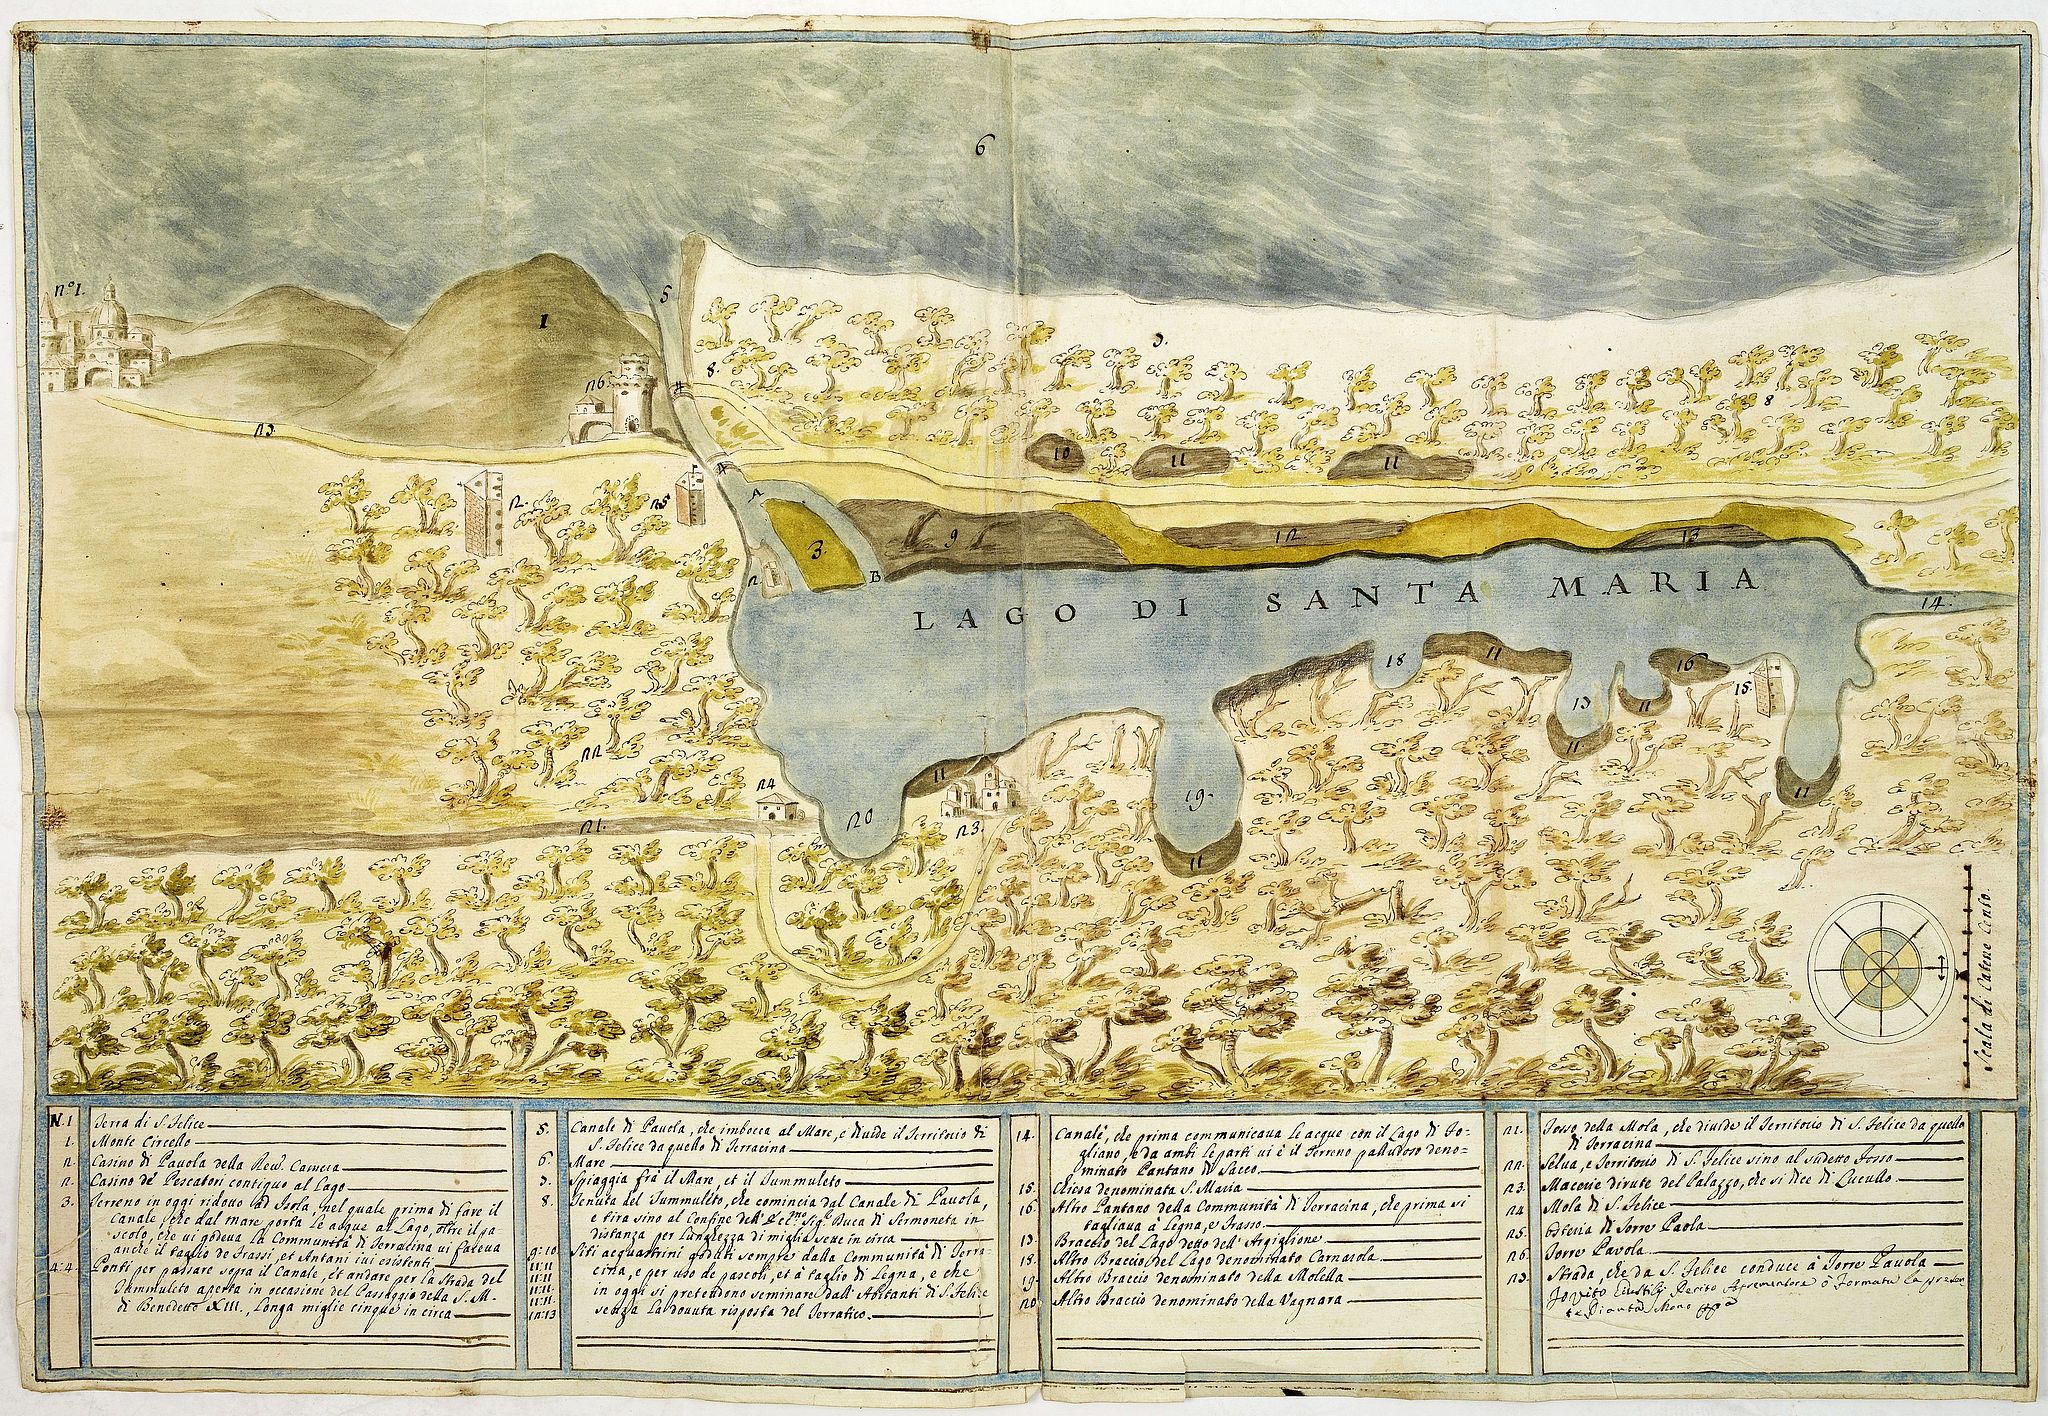 6
nº1.
1
5
n6
4
8.
3.
8
n3.
10
11
11
n.
n5
4
A
3
B
n
9
12
13
LAGO DI SANTA MARIA
14.
18
11
16
15.
13
11
11
11
nn
n4
11
19.
20
n3.
n1.
11
Scala di Catene Cento.
N. 1 Terra di S. Felice
1. Monte Circello
n. Casino di Pauola della Reu. Camera
n. Casino de Pescatori contiguo al Lago
3. Terreno in oggi ridotto ad Isola, nel quale prima di fare il
Canale, che dal mare porta le acque al Lago, oltre il pa
scolo, che ui godeua la Communità di Terracina ui faceua
anche il taglio de Frassi, et Antani iui esistenti
4:4 Ponti per passare sopra il Canale, et andare per la Strada del
Tummuleto aperta in occasione del Passaggio della S. M.
di Benedetto XIII, Longa miglie cinque in circa
5. Canale di Pauola, che imbocca al Mare, e diuide il Territorio di
S. Felice da quello di Terracina
6. Mare
3. Spiaggia frà il Mare, et il Tummuleto
8. Tenuta del Tummuleto, che comincia dal Canale di Pauola,
e tira sino al Confine dell' Ecc.mo Sig. Duca di Sermoneta in
distanza per Lunghezza di miglia sette in circa
9:10 Siti acquatrini goduti sempre dalla Communità di Terra-
11:11 cina, e per uso de pascoli, et à taglio di Legna, e che
11:11 in oggi si pretendono seminare dall' Abitanti di S. Felice
11:11
12:13 senza la douuta risposta del Terratico.
14. Canale, che prima communicaua le acque con il Lago di Fo-
gliano, e da ambi le parti ui è il Terreno palludoso deno-
minato Pantano di Sacco.
15. Chiesa denominata S. Maria
16. Altro Pantano della Communità di Terracina, che prima si
tagliaua à Legna, e Frasso.
13 Braccio del Lago detto dell' Argiglione
18. Altro Braccio del Lago denominato Carnarola
19. Altro Braccio denominato della Molella
no Altro Braccio denominato della Vagnara
n1. Fosso della Mola, che diuide il Territorio di S. Felice da quello
di Terracina
nn. Selua, e Territorio di S. Felice sino al sudetto Fosso
n3. Macerie dirute del Palazzo, che si dice di Lucullo
n4 Mola di S. Felice
n5. Osteria di Torre Paola
n6. Torre Pauola
n3. Strada, che da S. Felice conduce à Torre Pauola
Io Vito Perito Agrimensore ò formata la presen
te Pianta Mano